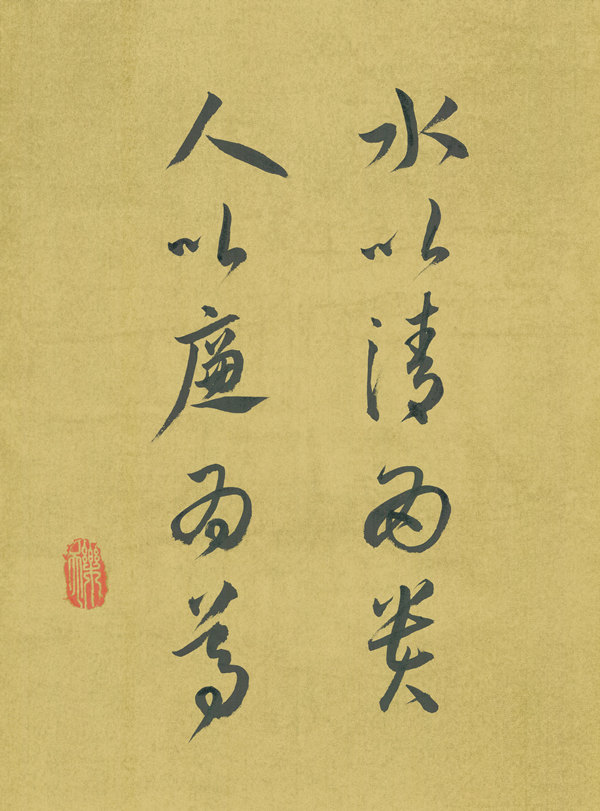 水以清為美
人以廉為尊